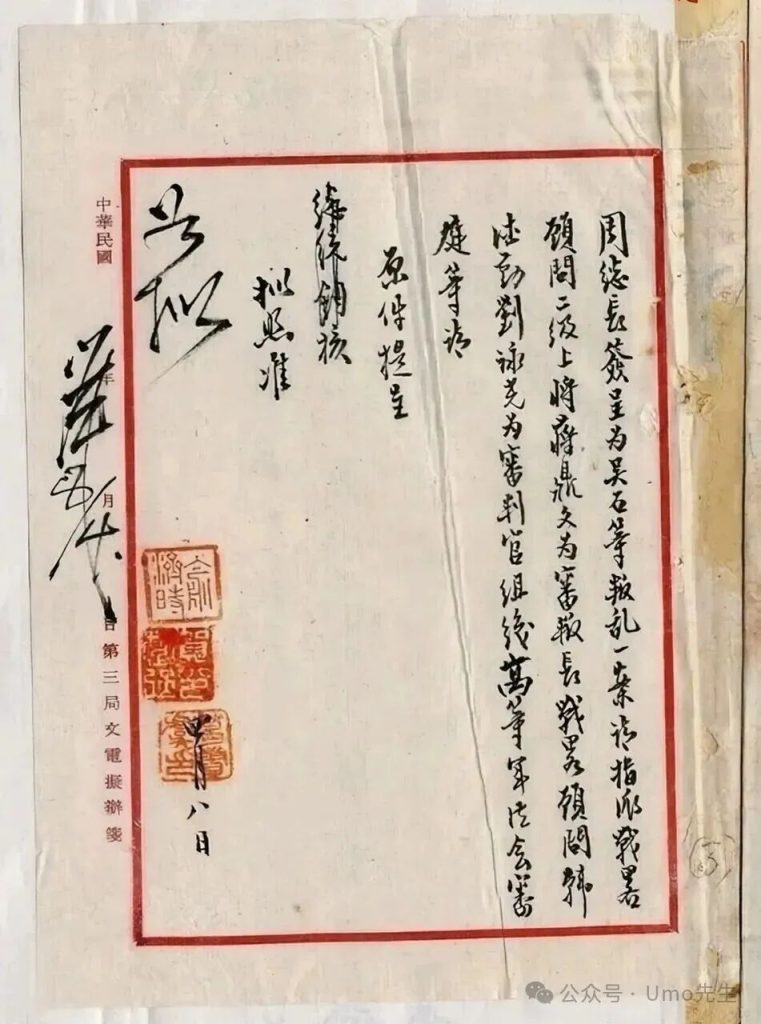 周總長簽呈為吳石等叛亂一案請指派戰畧
顧問二級上將蔣鼎文為審判長戰畧顧問韓
德勤劉詠堯為審判官組織高等軍法会審
庭等語
原件提呈
鈞核
擬照准
如擬
中華民國 年 月 日
第三局文電擬辦箋
四月八日
公众号 · Umo先生